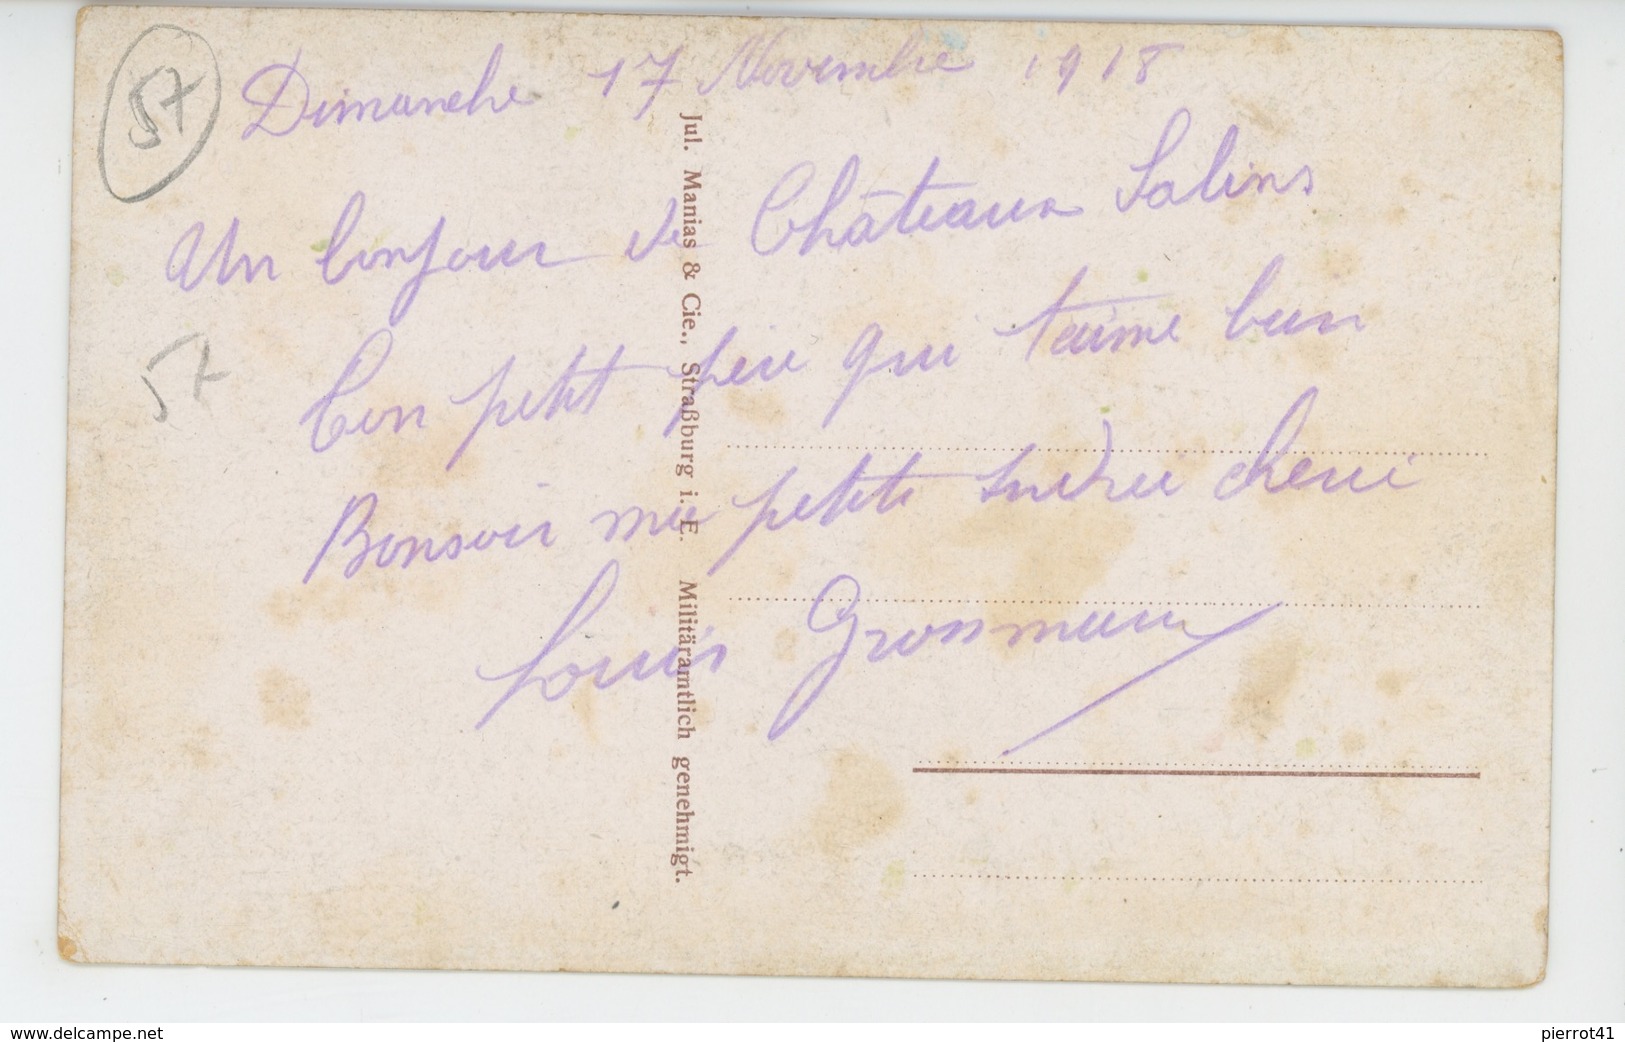 57
Dimanche 17 Novembre 1918
Un bonjour de Châteaux Salins
57
Ton petit père qui t'aime bien
Bonsoir ma petite Andrée cheri
Louis Grossmann
Jul. Manias & Cie., Straßburg i. E. Militäramtlich genehmigt.
www.delcampe.net
pierrot41